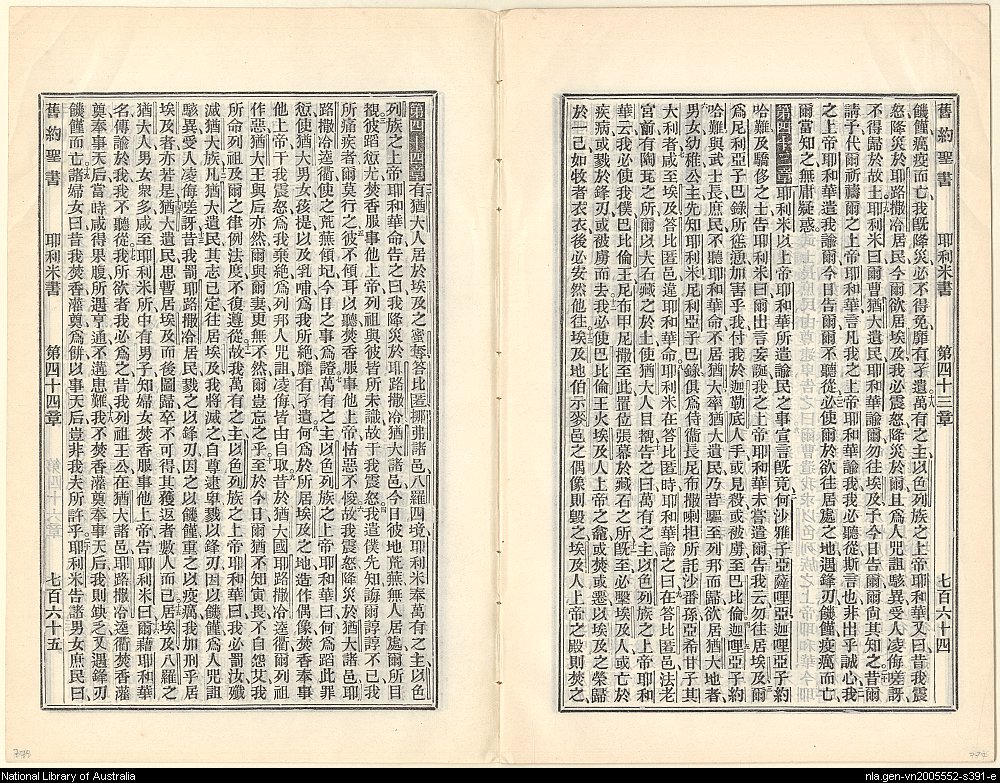 舊約聖書 耶利米書 第四十三章 七百六十四
饑饉癘疫而亡、我既降災、必不得免、靡有孑遺、萬有之主、以色列族之上帝耶和華又曰、昔我震
怒、降災於耶路撒冷居民、今爾欲居埃及、我必震怒、降災於爾、且爲人咒詛、駭異受人凌侮嗟訝、
不得歸於故土、耶利米曰、爾曹猶大遺民、耶和華諭爾勿往埃及、予今日告爾、爾尚其知之、昔爾
請予代爾祈禱爾之上帝耶和華言、凡我之上帝耶和華諭我、我必聽從、斯言也、非出乎誠心、我
之上帝耶和華遣我諭爾、今日告爾、爾不聽從、必使爾於欲往居處之地、遇鋒刃饑饉疫癘而亡、
爾當知之、無庸疑惑
第四十三章 耶利米以上帝耶和華所遣諭民之事、宣言既竟、何沙雅子亞薩哩亞、迦哩亞子約
哈難、及驕侈之士、告耶利米曰、爾出言妄誕、我之上帝耶和華未嘗遣爾告我云、勿往居埃及、爾
爲尼利亞子巴錄所慫慂、加害乎我、付我於迦勒底人手、或見殺、或被虜至巴比倫、迦哩亞子約
哈難與武士長庶民、不聽耶和華命、不居猶大、率猶大遺民、乃昔驅至列邦而歸、欲居猶大地者、
男女幼稚公主、先知耶利米、尼利亞子巴錄、俱爲侍衛長尼布撒喇担所託沙番孫亞希甘子其
大利者、咸至埃及答比匿邑、違耶和華命、耶利米在答比匿時、耶和華諭之曰、在答比匿邑、法老
宮前、有陶瓦之所、爾以大石藏之於土、使猶大人目覩、告之曰、萬有之主、以色列族之上帝耶和
華云、我必使我僕巴比倫王尼布甲尼撒至此、置位張幕於藏石之所、既至、必擊埃及人、或亡於
疾病、或戮於鋒刃、或被虜而去、我必使巴比倫王火埃及人上帝之龕、或焚或遷、以埃及之榮歸
於一己、如牧者衣衣、後必安然他往、埃及地伯示麥邑之偶像則毀之、埃及人上帝之殿則焚之、
第四十四章 有猶大人居於埃及之密奪、答比匿、挪弗諸邑、八羅四境、耶利米奉萬有之主、以色
列族之上帝耶和華命、告之曰、我降災於耶路撒冷、猶大諸邑、今日彼地荒蕪、無人居處、爾所目
覩、彼蹈愆尤、焚香服事他上帝、列祖與彼皆所未識、故干我震怒、我遣僕先知、誨爾諄諄、不已、我
所痛疾者、爾莫行之、彼不傾耳以聽、焚香服事他上帝、怙惡不悛、故我震怒、降災於猶大諸邑、耶
路撒冷逵衢、使之荒蕪傾圮、今日之事爲證、萬有之主、以色列族之上帝耶和華曰、何爲蹈此罪
愆、使猶大男女孩提以及乳哺、爲我所絕、靡有孑遺、何爲於所居埃及之地、造作偶像、焚香奉事
他上帝、干我震怒、爲我棄絕、爲列邦人咒詛凌侮、皆由自取、昔於猶大國、耶路撒冷逵衢、爾列祖
作惡、猶大王與后亦然、爾與爾妻更無不然、爾豈忘之乎、至於今日、爾猶不知寅畏、不自怨艾、我
所命列祖及爾之律例法度、不復遵從、故我萬有之主、以色列族之上帝耶和華曰、我必罰汝、殲
滅猶大族、凡猶大遺民、其志已定、往居埃及、我將滅之、自尊逮卑、戮以鋒刃、因以饑饉、爲人咒詛
駭異、受人凌侮嗟訝、昔我罰耶路撒冷居民、戮之以鋒刃、因之以饑饉、重之以疫癘、我加刑乎居
埃及者、亦若是、猶大遺民、思暫居埃及、而後圖歸、卒不可得、其獲返者數人而已、居埃及八羅之
猶大人、男女衆多、咸至耶利米所、中有男子、知婦女焚香服事他上帝、告耶利米曰、爾藉耶和華
名、傳諭於我、我不聽從、我所欲者、我必爲之、昔我列祖王公、在猶大諸邑、耶路撒冷逵衢、焚香灌
奠、奉事天后、當時咸得果腹、所遇亨通、不溝患難、我不焚香灌奠、奉事天后、我則缺乏、又遇鋒刃
饑饉而亡、諸婦女曰、昔我焚香灌奠、爲餅以事天后、豈非我夫所許乎、耶利米告諸男女庶民曰、
舊約聖書 耶利米書 第四十四章 七百六十五
National Library of Australia
nla.gen-vn2005552-s391-e